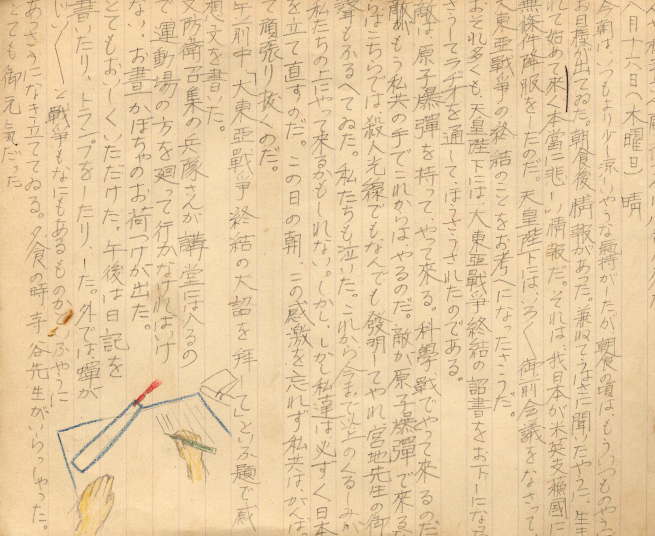 八月十六日(木曜日) 晴
今朝はいつもより少し涼しいやうな気持がしたが朝食の頃は、もういつものやうに
お日様が出てゐた。朝食後、情報があった。
れて始めて来く本當に悲しい情報だ。それは、我日本が米英支蘇國に
無條件降服をしたのだ。天皇陛下には、いろ〱御前会議をなさって、
大東亜戰爭の終結のことをお考へになったさうだ。
おそれ多くも、天皇陛下には、大東亜戰爭終結の詔書をお下しになる
さうしてラヂオを通して、はうそうされたのである。
敵は原子爆彈を持って、やって來る。科學戰でやって來るのだ
敵がもう私共の手でこれからは、やるのだ。敵が原子爆彈で來るな
らばこちらでは殺人光線でもなんでも發明してやれ。宮地先生の御
聲もふるへてゐた。私たちも泣いた。これから今まで以上のくるしみが
私たちの上にやって來るかもしれない。しかし、しかし私達は必ずく日本
を立て直すのだ。この日の朝、この感激を忘れず私共はがんば
って頑張り抜くのだ。
午前中、「大東亜戰爭終結の大詔を拜して」といふ題で感
想文を書いた。
文防衛召集の兵隊さんが講堂にはいるの
で、運動場の方を廻って行かなければいけ
ない。お晝、かぼちゃのお荷つけが出た。
とてもおいしくいただけた。午後は日記を
書いたり、トランプをしたりした。外では蟬が
戰爭もなにもあるものかといふやうに
あさうになき立ててゐる。夕食の時、寺谷先生がいらっしゃった。
とても御元気だった